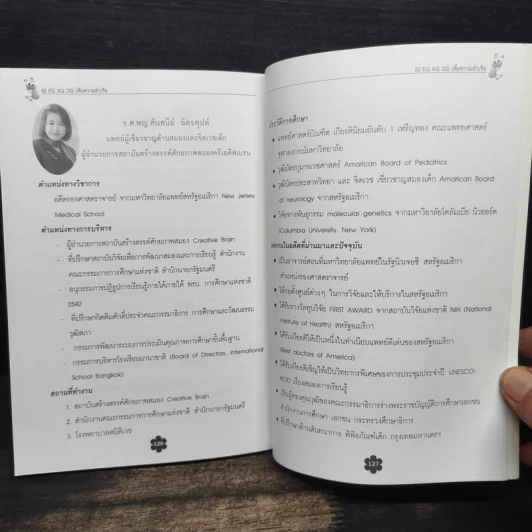 IQ EQ AQ 3Q เพื่อความสำเร็จ
ร.ศ.พญ.ศันสนีย์ ฉัตรคุปต์
แพทย์ผู้เชี่ยวชาญด้านสมองและจิตเวชเด็ก
ผู้อำนวยการสถาบันสร้างสรรค์ศักยภาพสมองครีเอตีฟเบรน
ตำแหน่งทางวิชาการ
อดีตรองศาสตราจารย์ จากมหาวิทยาลัยแพทย์สหรัฐอเมริกา New Jersey
Medical School
ตำแหน่งทางการบริหาร
- ผู้อำนวยการสถาบันสร้างสรรค์ศักยภาพสมอง Creative Brain
- ที่ปรึกษาสถาบันวิจัยเพื่อการพัฒนาสมองและการเรียนรู้ สำนักงาน
คณะกรรมการการศึกษาแห่งชาติ สำนักนายกรัฐมนตรี
- อนุกรรมการปฏิรูปการเรียนรู้ภายใต้ภายใต้ พรบ. การศึกษาแห่งชาติ
2542
- ที่ปรึกษากิตติมศักดิ์ประจำคณะกรรมาธิการ การศึกษาและวัฒนธรรม
วุฒิสภา
- กรรมการพัฒนาระบบการประเมินคุณภาพการศึกษาขั้นพื้นฐาน
- กรรมการบริหารโรงเรียนนานาชาติ (Board of Director, International
School Bangkok)
สถานที่ทำงาน
1. สถาบันสร้างสรรค์ศักยภาพสมอง Creative Brain
2. สำนักงานคณะกรรมการการศึกษาแห่งชาติ สำนักนายกรัฐมนตรี
3. โรงพยาบาลสมิติเวช
126
IQ EQ AQ 3Q เพื่อความสำเร็จ
ประวัติการศึกษา
• แพทย์ศาสตร์บัณฑิต เกียรตินิยมอันดับ 1 เหรียญทอง คณะแพทยศาสตร์
จุฬาลงกรณ์มหาวิทยาลัย
• วุฒิบัตรกุมารเวชศาสตร์ Amarican Board of Pediatrics
• วุฒิบัตรประสาทวิทยา และ จิตเวช เชี่ยวชาญสมองเด็ก Amarican Board
of neurology จากสหรัฐอเมริกา
• วิจัยทางพันธุกรรม molecular genetics จากมหาวิทยาลัยโคลัมเบีย นิวยอร์ค
(Columbia University, New York)
ผลงานในอดีตที่ผ่านมาและปัจจุบัน
• เป็นอาจารย์สอนที่มหาวิทยาลัยแพทย์ในรัฐนิวเจอซี สหรัฐอเมริกา
ตำแหน่งรองศาสตราจารย์
• ได้ก่อตั้งศูนย์ต่างๆ ในการวิจัยและให้บริการในสหรัฐอเมริกา
• ได้รับรางวัลทุนวิจัย FIRST AWARD จากสถาบันวิจัยแห่งชาติ NIH (National
Institute of Health) สหรัฐอเมริกา
• ได้รับเกียรติให้เป็นหนึ่งในทำเนียบแพทย์ดีเด่นของสหรัฐอเมริกา
(Best doctors of America)
• ได้รับเกียรติเชิญให้เป็นวิทยากรพิเศษของการประชุมประจำปี UNESCO-
ACID เรื่องสมองการเรียนรู้
• เป็นผู้ทรงคุณวุฒิของคณะกรรมาธิการร่างพระราชบัญญัติการศึกษาเอกชน
สำนักงานการศึกษา เอกชน กระทรวงศึกษาธิการ
• ที่ปรึกษาด้านสันทนาการ พิพิธภัณฑ์เด็ก กรุงเทพมหานครฯ
127